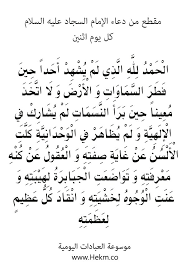 مقطع من دعاء الإمام السجاد عليه السلام
كل يوم اثنين
الْحَمْدُ لِلَّهِ الَّذِي لَمْ يُشْهِدْ أَحَداً حِينَ
فَطَرَ السَّمَاوَاتِ وَ الْأَرْضَ وَ لَا اتَّخَذَ
مُعِيناً حِينَ بَرَأَ النَّسَمَاتِ لَمْ يُشَارَكْ فِي
الْإِلَهِيَّةِ وَ لَمْ يُظَاهَرْ فِي الْوَحْدَانِيَّةِ كَلَّتِ
الْأَلْسُنُ عَنْ غَايَةِ صِفَتِهِ وَ الْعُقُولُ عَنْ كُنْهِ
مَعْرِفَتِهِ وَ تَوَاضَعَتِ الْجَبَابِرَةُ لِهَيْبَتِهِ وَ
عَنَتِ الْوُجُوهُ لِخَشْيَتِهِ وَ انْقَادَ كُلُّ عَظِيمٍ
لِعَظَمَتِهِ
موسوعة العبادات اليومية
www.Hekm.co